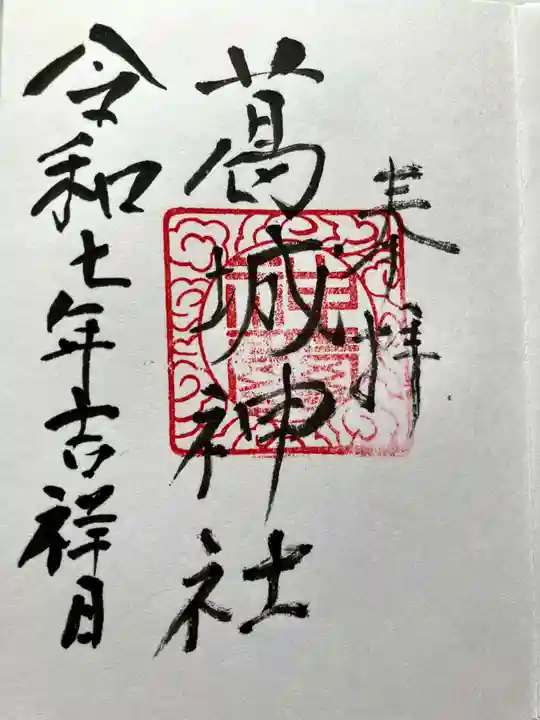 奉拝
葛城神社
令和七年吉祥月